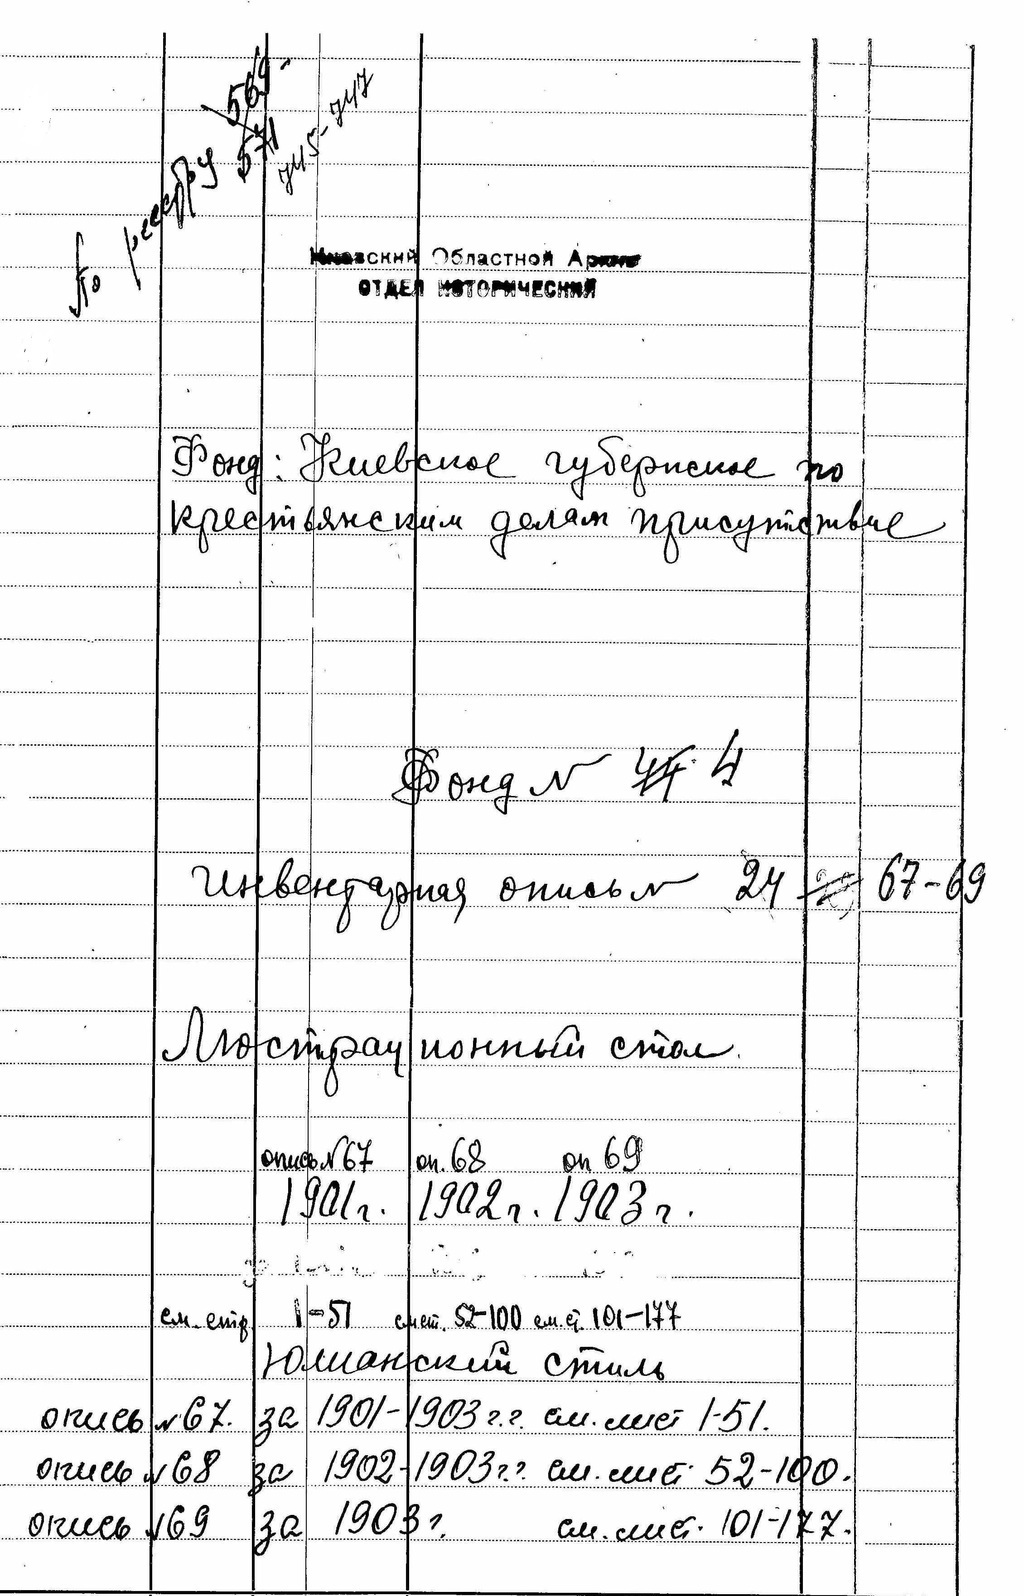 По реестру 569-
571
745-747
Киевский Областной Архив
ОТДЕЛ ИСТОРИЧЕСКИЙ
Фонд: Киевское губернское по
крестьянским делам присутствие
Фонд № 44. 4
Инвентарная опись № 24 67-69
Люстрационный стол.
опись №67 оп. 68 оп 69
1901 г. 1902 г. 1903 г.
см. стр. 1-51 см ст. 52-100 см. ст. 101-177
Юлианский стиль
опись №67. за 1901-1903 г.г. см. лист 1-51.
опись №68 за 1902-1903 г.г. см. лист 52-100.
опись №69 за 1903 г. см. лист. 101-177.